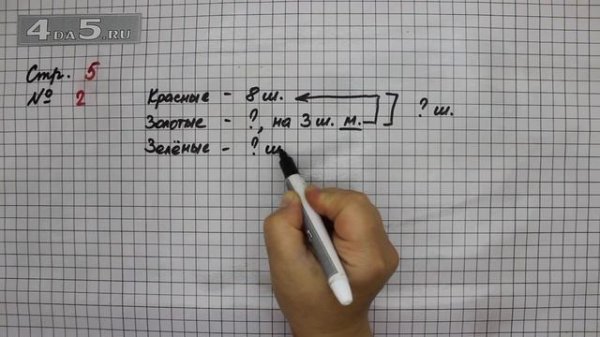 4DA5.RU
Стр. 5
№ 2
Красные - 8 ш.
Золотые - ?, на 3 ш. м.
? ш.
Зелёные - ? ш